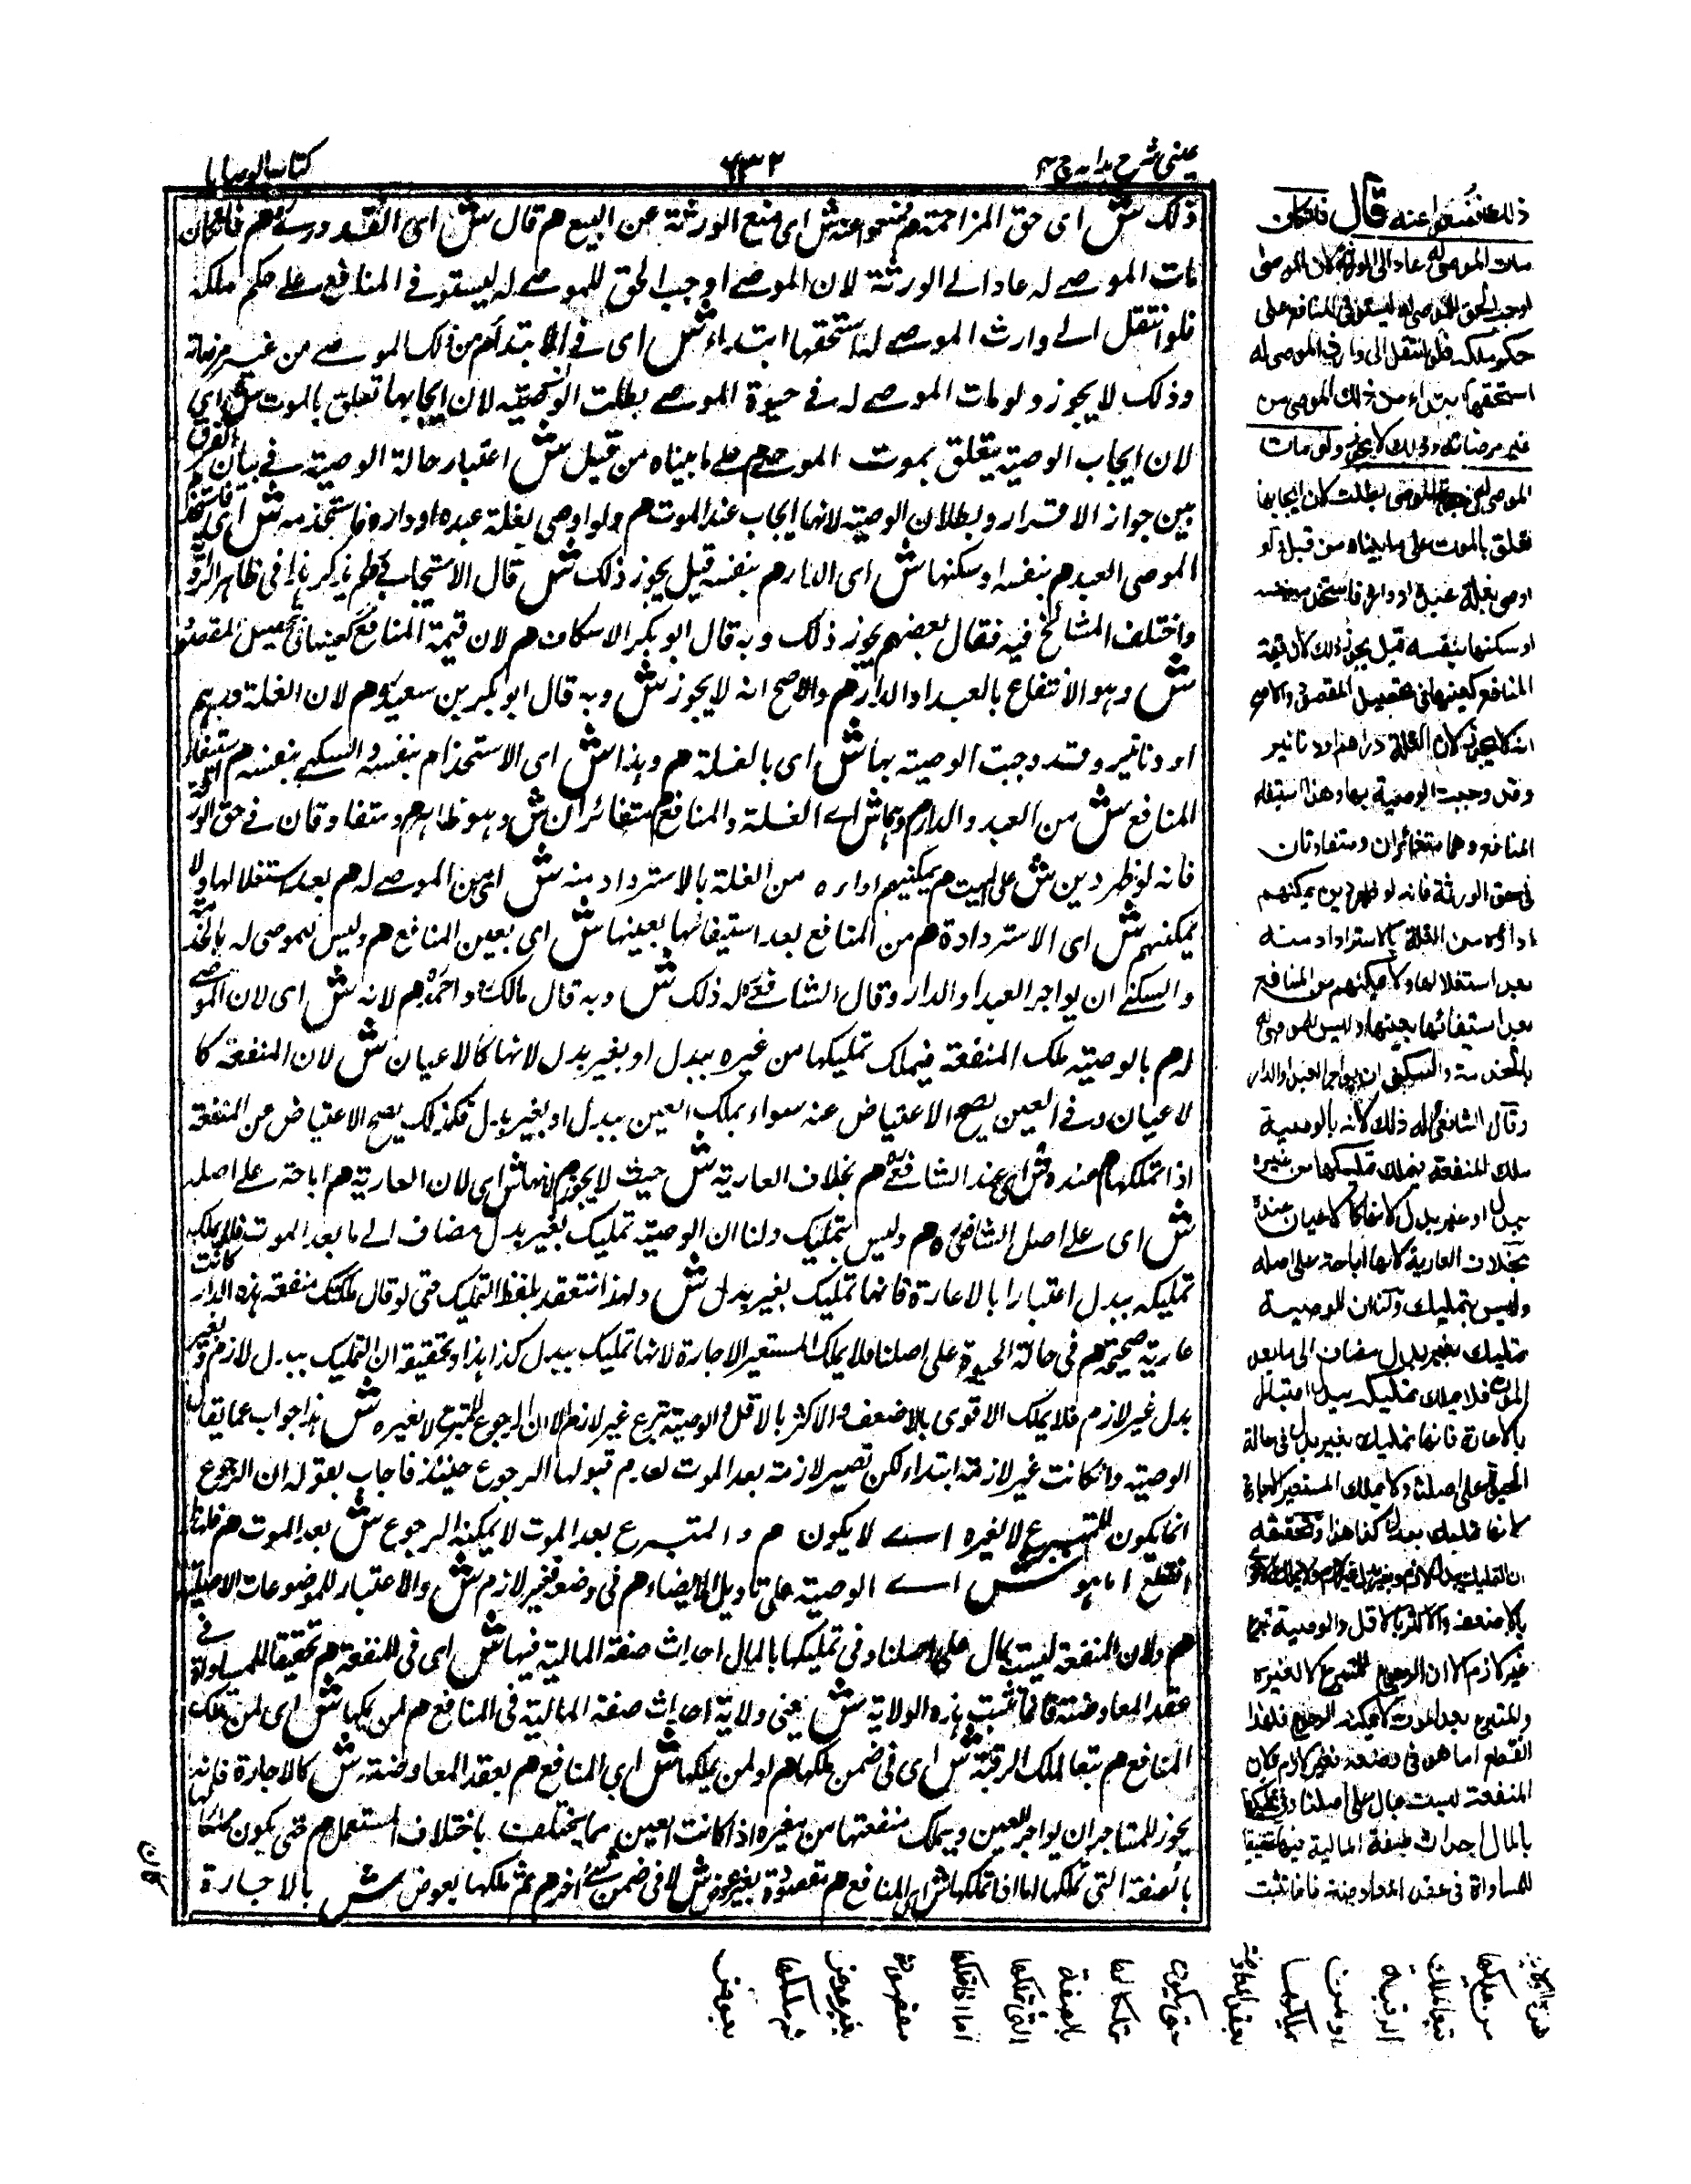 عيني شرح هدايه ج ٤
٦٣٢
كتاب الوصايا
ذلك ش اى حق المزاحمة هم فمنعوا عنه ش اى منع الورثة عن البيع هم قال ش اى القدورى هم فان كان
مات الموصے له عاد الے الورثة لان الموصے اوجب الحق للموصے له ليستوفے المنافع على حكم ملكه
فلو انتقل الے وارث الموصے له استحقها ابتداء ش اى فے الابتداء هم من ذلك الموصے من غير مرضاته
وذلك لا يجوز ولو مات الموصے له فے حيوة الموصے بطلت الوصية لان ايجابها تعلق بالموت ش اى
لان ايجاب الوصية يتعلق بموت الموصے هم على ما بيناه من قبل ش اعتبار حالة الوصية فے بيان الفرق
بين جواز الاقرار وبطلان الوصية لانها ايجاب عند الموت هم ولو اوصى بغلة عبده او داره فاستخدمه ش اى فاستخدم
الموصى العبد هم بنفسه او سكنها ش اى الدار هم بنفسه قيل يجوز ذلك ش قال الاسبيجابى لم يذكر هذا فى ظاهر الرو
واختلف المشائخ فيه فقال بعضهم يجوز ذلك وبه قال ابو بكر الاسكاف هم لان قيمة المنافع كعينها فى تحصيل المقصود
ش وهو الانتفاع بالعبد او الدار هم والاصح انه لا يجوز ش وبه قال ابو بكر بن سعيد هم لان الغلة دراهم
او دنانير وقد وجبت الوصية بها ش اى بالغلة هم وهذا ش اى الاستخدام بنفسه والسكنے بنفسه هم استيفاء
المنافع ش من العبد والدار هم وهما ش اے الغلة والمنافع هم متغائران ش وهو ظاهر هم ومتفاوتان فے حق الورثة
فانه لو ظهر دين ش على الميت هم يمكنهم اداءه من الغلة بالاسترداد منه ش اى من الموصے له هم بعد استغلالها ولا
يمكنهم ش اى الاسترداد هم من المنافع بعد استيفائها بعينها ش اى بعين المنافع هم وليس للموصى له بالخدمة
والسكنے ان يواجر العبد او الدار وقال الشافعے له ذلك ش وبه قال مالك واحمد هم لانه ش اى لان الموصے
له هم بالوصية ملك المنفعة فيملك تمليكها من غيره ببدل او بغير بدل لانها كالاعيان ش لان المنفعة كا
لاعيان وفے العين يصح الاعتياض عنه سواء يملك العين ببدل او بغير بدل فكذلك يصح الاعتياض عن المنفعة
اذا تملكها هم عنده ش اى عند الشافعے هم بخلاف العارية ش حيث لا يجوز هم لانها ش اى لان العارية هم اباحة على اصله
ش اى على اصل الشافعى هم وليس بتمليك ولنا ان الوصية تمليك بغير بدل مضاف الے ما بعد الموت فلا يملك
تمليكه ببدل اعتبارا بالاعارة فانها تمليك بغير بدل ش ولهذا تنعقد بلفظ التمليك حتى لو قال ملكتك منفعة هذه الدار كانت
عارية صحيحة هم فى حالة الحيوة على اصلنا فلا يملك المستعير الاجارة لانها تمليك ببدل كذا هذا وتحقيقه ان التمليك ببدل لازم وبغير
بدل غير لازم فلا يملك الاقوى بالاضعف والاكثر بالاقل والوصية تبرع غير لازم الا ان الرجوع للمتبرع لا لغيره ش هذا جواب عما يقال
الوصية وان كانت غير لازمة ابتداء لكن تصير لازمة بعد الموت لعدم قبولها الرجوع حينئذ فاجاب بقوله ان الرجوع
انما يكون للمتبرع لا لغيره اے لا يكون هم والمتبرع بعد الموت لا يمكنه الرجوع ش بعد الموت هم فلهذا
انقطع اما هو ش اے الوصية على تاويل الايصاء هم فى وضعه فغير لازم ش والاعتبار للموضوعات الاصلية
هم ولان المنفعة ليست بمال على اصلنا وفى تمليكها بالمال احداث صفة المالية فيها ش اى فى المنفعة هم تحقيقا للمساواة فے
عقد المعاوضة فانما تثبت هذه الولاية ش يعنى ولاية احداث صفة المالية فى المنافع هم لمن يملكها ش اى لمن يملك
المنافع هم تبعا لملك الرقبة ش اى فى ضمن ملكها هم او لمن يملكها ش اى المنافع هم بعقد المعاوضة ش كالاجارة فانه
يجوز للمستاجر ان يواجر العين ويملك منفعتها من غيره اذا كانت العين مما يختلف باختلاف المستعمل هم حتى يكون مملكا لها
بالصفة التى تملكها اما اذا تملكها ش اى المنافع هم مقصودة بغير عوض ش لا فى ضمن شئ اخر هم ثم ملكها بعوض ش بالاجارة
كان
ذلك فمنعوا عنه قال فان كان
مات الموصى له عاد الى الورثة لان الموصى
اوجب الحق للموصى له ليستوفى المنافع على
حكم ملكه فلو انتقل الى وارث الموصى له
استحقها ابتداء من ذلك الموصى من
غير مرضاته وذلك لا يجوز ولو مات
الموصى له فى حيوة الموصى بطلت لان ايجابها
تعلق بالموت على ما بيناه من قبل ولو
اوصى بغلة عبده او داره فاستخدمه بنفسه
او سكنها بنفسه قيل يجوز ذلك لان قيمة
المنافع كعينها فى تحصيل المقصود والاصح
انه لا يجوز لان الغلة دراهم او دنانير
وقد وجبت الوصية بها وهذا استيفاء
المنافع وهما متغائران ومتفاوتان
فى حق الورثة فانه لو ظهر دين يمكنهم
اداؤه من الغلة بالاسترداد منه
بعد استغلالها ولا يمكنهم من المنافع
بعد استيفائها بعينها وليس للموصى له
بالخدمة والسكنى ان يواجر العبد او الدار
وقال الشافعى له ذلك لانه بالوصية
ملك المنفعة فيملك تمليكها من غيره
ببدل او غير بدل لانها كالاعيان عنده
بخلاف العارية لانها اباحة على اصله
وليس بتمليك ولنا ان الوصية
تمليك بغير بدل مضاف الى ما بعد
الموت فلا يملك تمليكه ببدل اعتبارا
بالاعارة فانها تمليك بغير بدل فى حالة
الحيوة على اصلنا ولا يملك المستعير الاجارة
لانها تمليك ببدل كذا هذا وتحقيقه
ان التمليك ببدل لازم وبغير بدل غير لازم ولا يملك الاقوى
بالاضعف والاكثر بالاقل والوصية تبرع
غير لازم الا ان الرجوع للمتبرع لا لغيره
والمتبرع بعد الموت لا يمكنه الرجوع فلهذا
انقطع اما هو فى وضعه فغير لازم ولان
المنفعة ليست بمال على اصلنا وفى تمليكها
بالمال احداث صفة المالية فيها تحقيقا
للمساواة فى عقد المعاوضة فانما تثبت
هذه الولاية
لمن يملكها
تبعا لملك
الرقبة
او لمن
يملكها
بعقد المعاوضة
حتى يكون
مملكا لها
بالصفة
التى تملكها
اما اذا تملكها
مقصودة
بغير عوض
ثم ملكها
بعوض